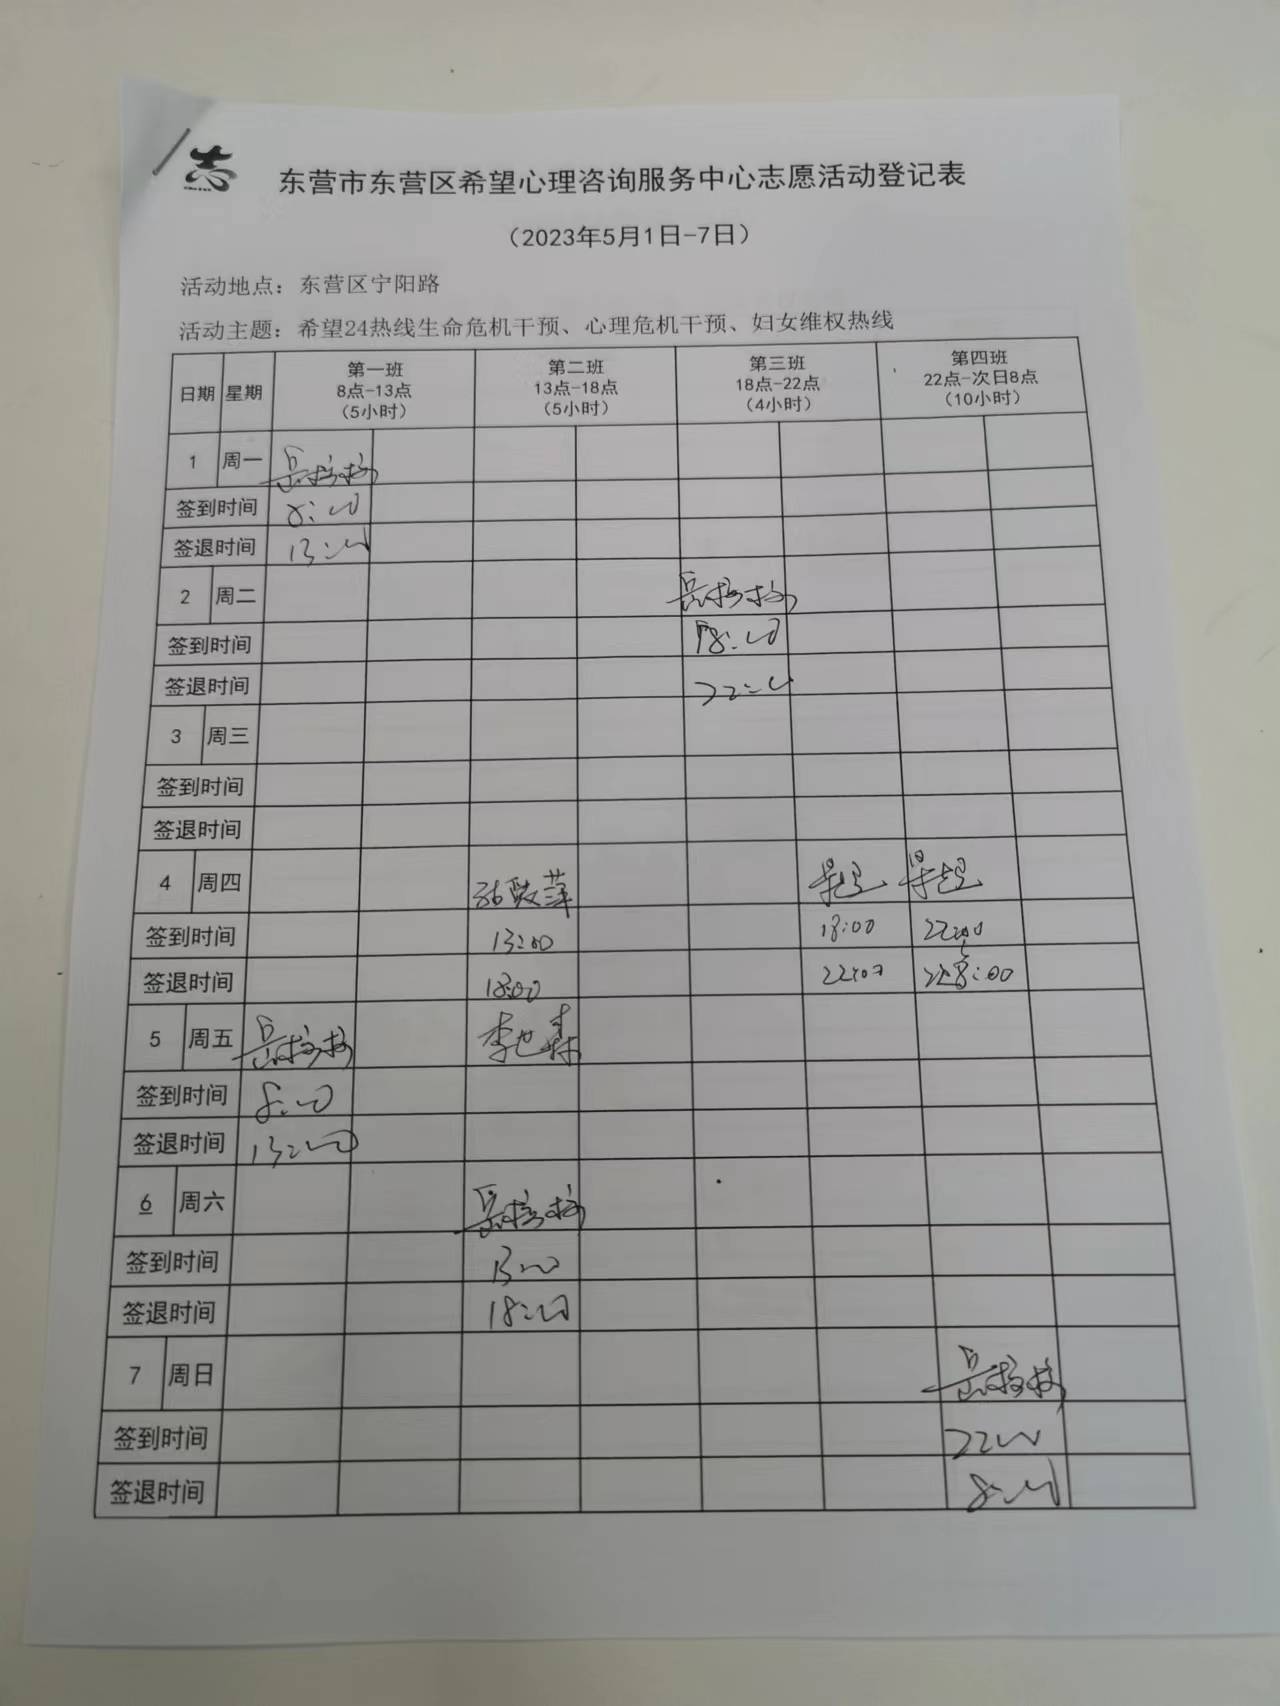 志
东营市东营区希望心理咨询服务中心志愿活动登记表
（2023年5月1日-7日）
活动地点：东营区宁阳路
活动主题：希望24热线生命危机干预、心理危机干预、妇女维权热线
日期 星期 第一班 8点-13点 （5小时） 第二班 13点-18点 （5小时） 第三班 18点-22点 （4小时） 第四班 22点-次日8点 （10小时）
1 周一
签到时间 8:00
签退时间 13:00
2 周二
签到时间 18:00
签退时间 22:00
3 周三
签到时间
签退时间
4 周四
签到时间 13:00 18:00 22:00
签退时间 18:00 22:00 8:00
5 周五 李世森
签到时间 8:00
签退时间 13:00
6 周六
签到时间 13:00
签退时间 18:00
7 周日
签到时间 22:00
签退时间 8:00